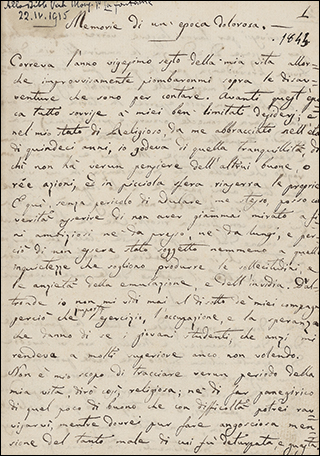 22.IV.1915
1
Memorie di un'epoca dolorosa.
1841
Correva l'anno vigesimo sesto della mia vita allor-
chè improvvisamente piombaronmi sopra le disav-
venture che sono per contare. Avanti quest'epo-
ca tutto sorrise a' miei ben limitati desiderj; e
nel mio stato di Religioso, da me abbracciato nell'età
di quindeci anni, io godeva di quella tranquillità, di
chi non ha verun pensiere dell'altrui buone o
ree azioni, e in picciola sfera rinserra le proprie.
E qui, senza pericolo di adulare me stesso, posso con
verità asserire di non aver giammai mirato a fi-
ni ambiziosi nè da presso, nè da lungi, e per-
ciò di non essere stato soggetto nemmeno a quelle
inquietezze che sogliono produrre le sollecitudini, e
le ansietà della emulazione, e dell'invidia. D'al-
tronde io non mi vidi mai al di sotto de' miei compagni
perciò che l'esercizio, l'occupazione, e la speranza
che danno di se i giovani studenti, che anzi mi
rendeva a molti superiore anco non volendo.
Non è mio scopo di tracciare verun periodo della
mia vita, dirò così, religiosa; nè di far panegirico
di quel poco di buono che con difficoltà potrei rav-
visarvi, mentre dovrei pur fare angosciosa men-
sione del tanto male di cui fu deturpata, e questa